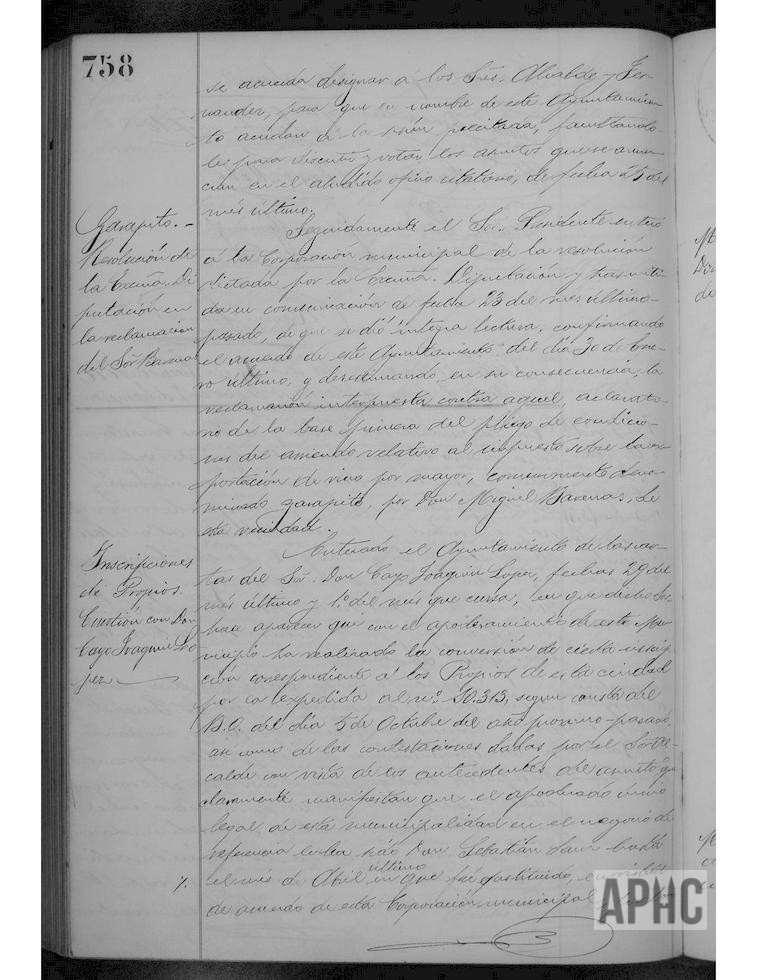 758
se acuerda designar á los Sres. Alcalde y Fer-
nandez, para que en nombre de este Ayuntamien-
to acudan á la sesión precitada, facultando-
les para discutir y votar los asuntos que se anun-
cian en el aludido oficio citatorio, de fecha 25 del
més último.
Garapito.-
Resolución de
la Excma. Di-
putación en
la reclamacion
del Sor. Barenas
Seguidamente el Sor. Presidente enteró
á la Corporación municipal de la resolución
dictada por la Excma. Diputación y trasmiti-
da en comunicación de fecha 23 del més último-
pasado, de que se dió íntegra lectura, confirmando
el acuerdo de este Ayuntamiento del día 30 de Ene-
ro último, y desestimando, en su consecuencia, la
reclamación interpuesta contra aquel, aclarato-
rio de la base primera del pliego de condicio-
nes del arriendo relativo al impuesto sobre la ex-
portación de vino por mayor, comunmente deno-
minado garapito, por Don Miguel Barenas, de
esta vecindad.
Inscripciones
de Propios.
Cuestión con Don
Cayo Joaquin Lo-
pez
Enterado el Ayuntamiento de las car-
tas del Sor. Don Cayo Joaquin Lopez, fechas 29 del
més último y 1º. del més que cursa, en que dicho Sor.
hace aparecer que con el apoderamiento de este Mu-
nicipio ha realizado la conversión de cierta inscrip-
ción correspondiente á los Propios de esta ciudad
por expedida al nº. 20.313, segun consta del
B.O. del día 5 de Octubre del año proximo-pasado,
asi como de las contestaciones dadas por el Sor. Al-
calde con vista de los antecedentes del asunto que
claramente manifiestan que el apoderado único
legal de esta municipalidad en el negocio de
referencia lo ha sido Don Sebastián Sanz hasta
el més de Abril último en que fué sustituido, en virtud
de acuerdo de esta Corporación municipal
APHC